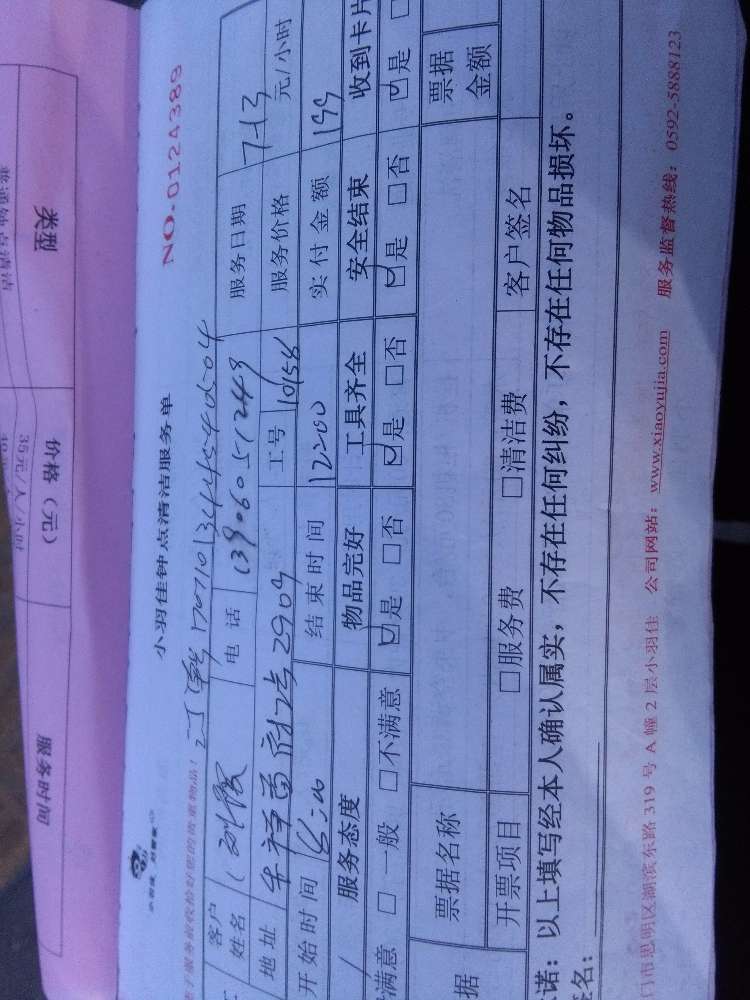 类型
价格（元）
服务时间
35元/人/小时
小羽佳钟点清洁服务单
NO.0124389
客户姓名
电话 13906051249
服务日期 7-13
地址
2909
工号 10156
服务价格 元/小时
开始时间
结束时间 12:00
实付金额 199
服务态度 物品完好 工具齐全 安全结束 收到卡片
满意 □一般 □不满意 ☑是 □否 ☑是 □否 ☑是 □否 ☑是
票据名称 票据金额
据 开票项目 □服务费 □清洁费 客户签名
诺：以上填写经本人确认属实，不存在任何纠纷，不存在任何物品损坏。
签名：
门市思明区湖滨东路 319 号 A 幢 2 层小羽佳 公司网站：www.xiaoyujia.com 服务监督热线：0592-5888123